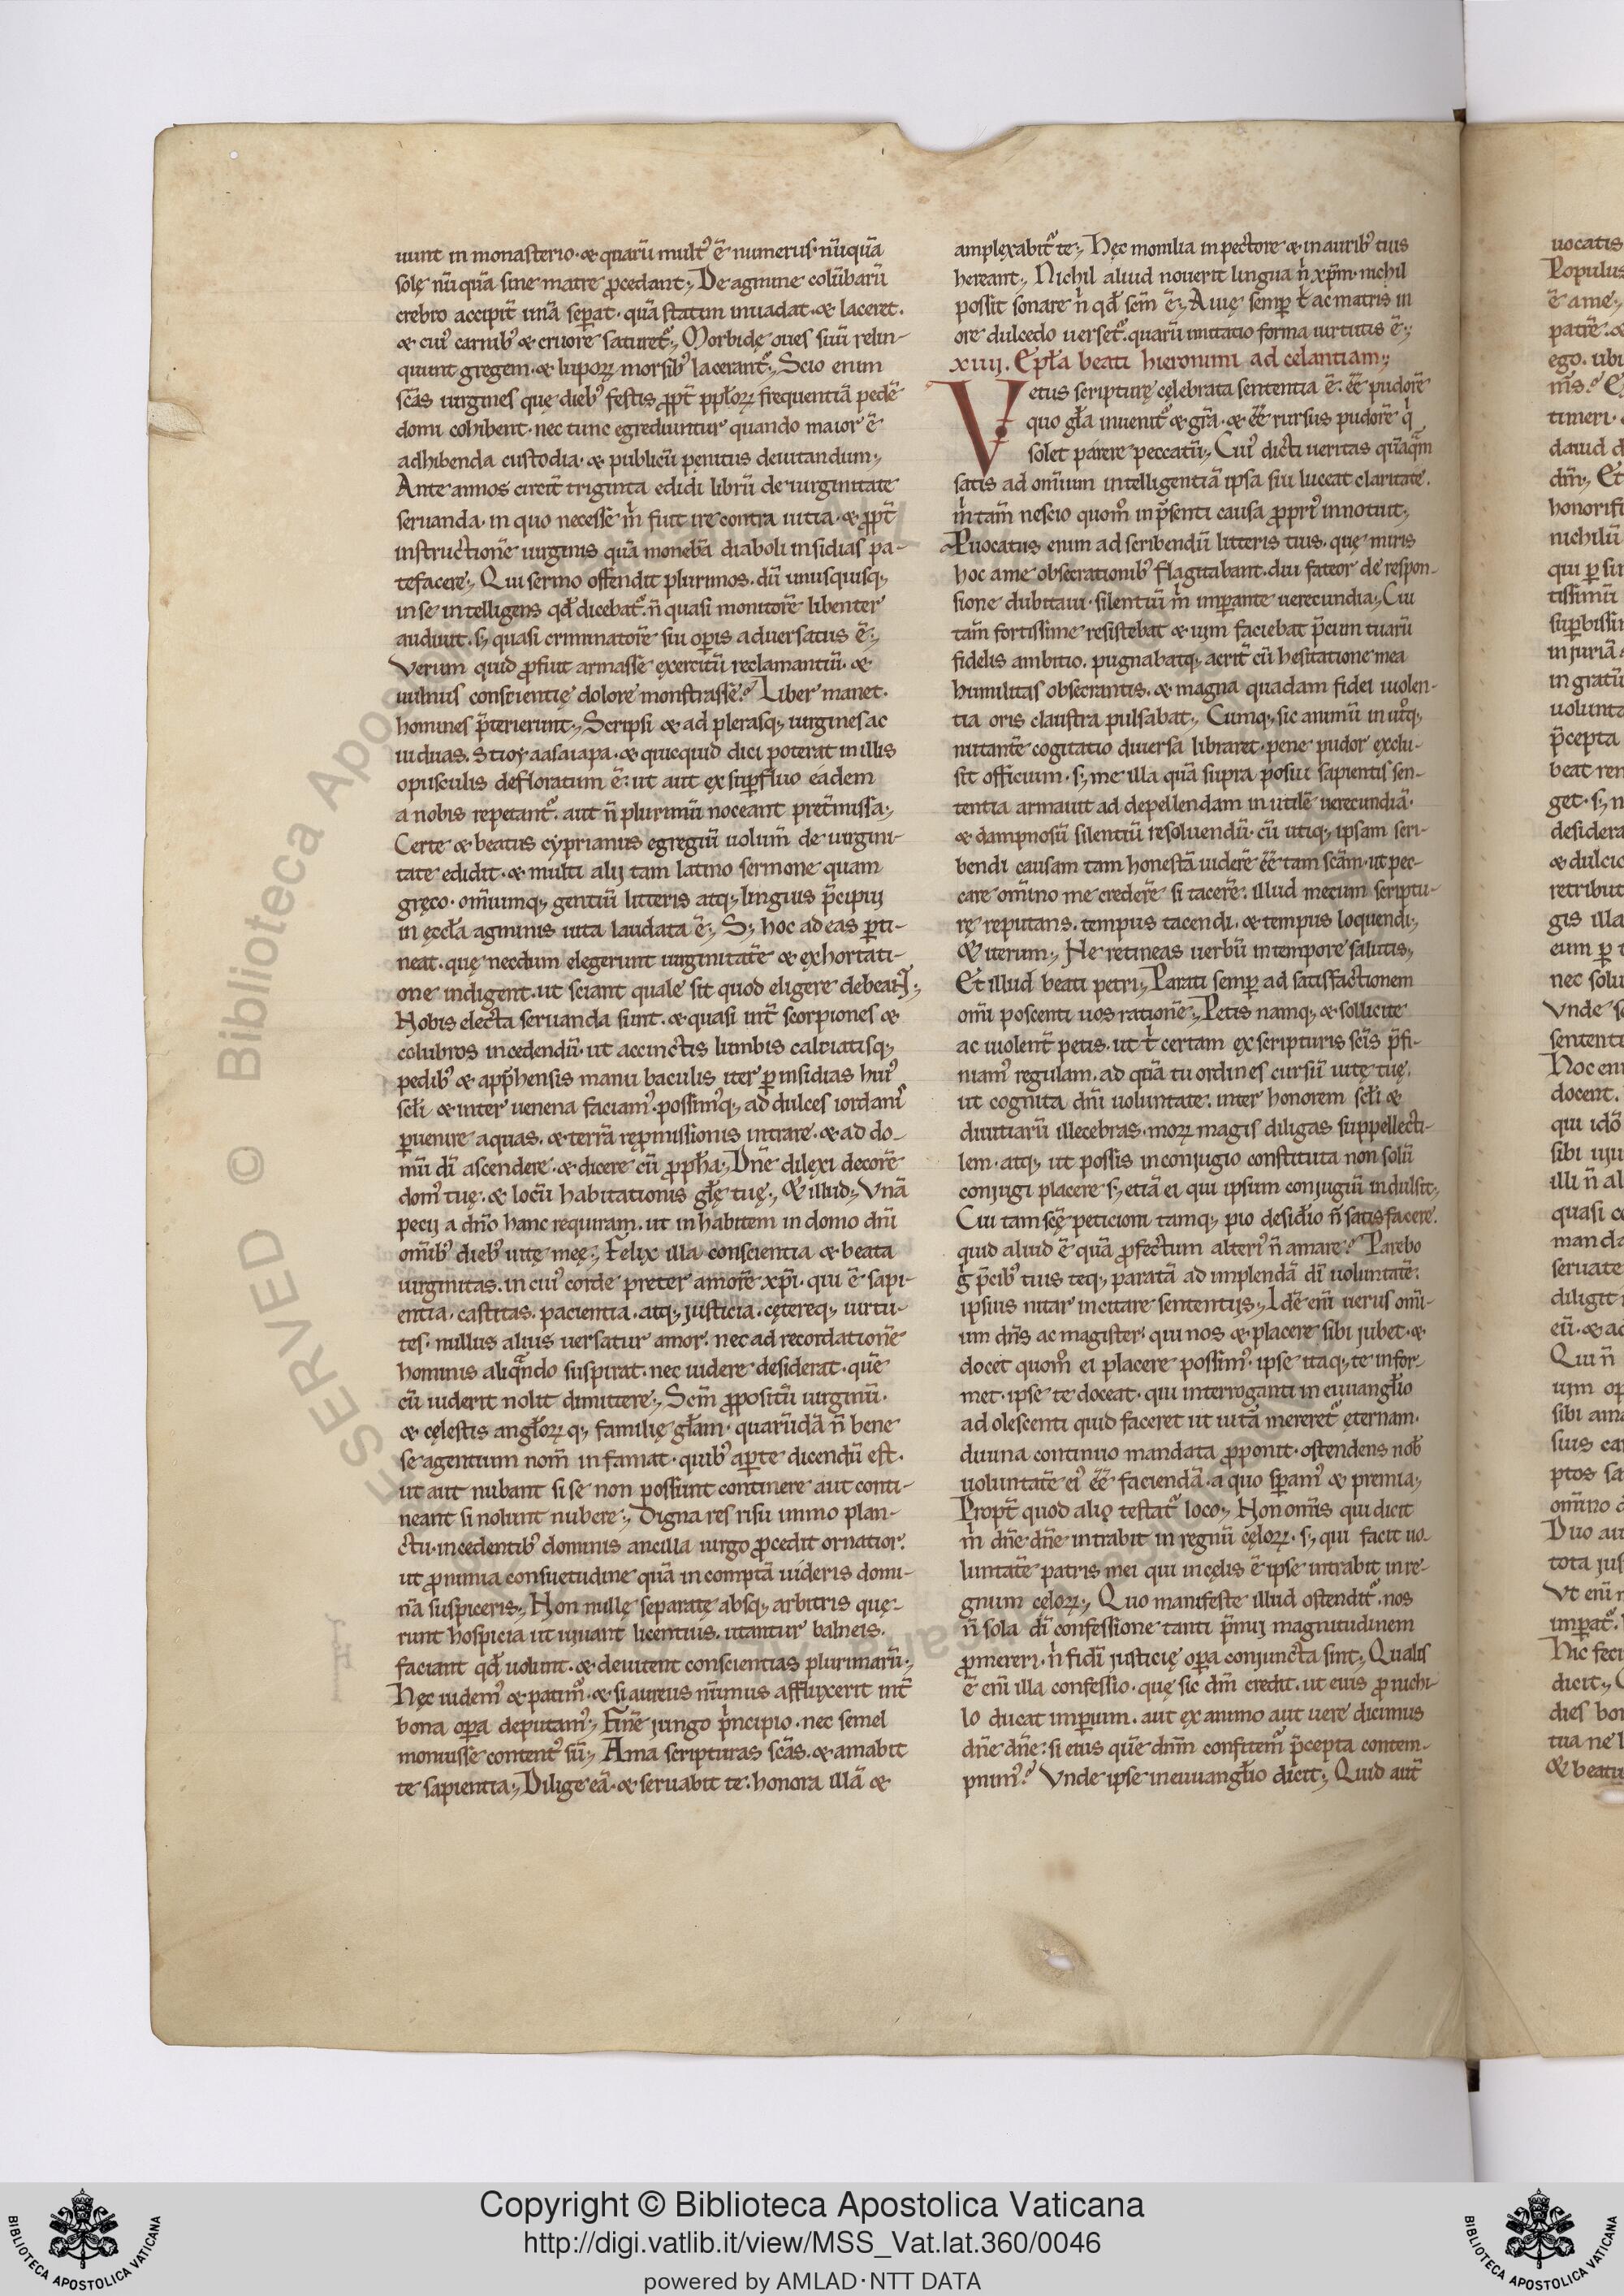 uiunt in monasterio· & quarū multꝰ ē numerus· nūquā
solę nūquā sine matre ꝓcedant; De agmine colūbarū
crebro accipit̄ unā sepaꝛat· quā statim inuadat· & laceret·
& cuiꝰ carnibꝰ & cruore saturet᷑; Morbidę oues suū relin-
quunt gregem· & lupoꝝ morsibꝰ lacerant᷑; Scio enim
scās uirgines quę diebꝰ festis ꝓpt̄ ppl̄oꝝ frequentiā pedē
domi cohibent· nec tunc egrediuntur quando maior ē
adhibenda custodia· & publicū penitus deuitandum;
Ante annos circit̄ triginta edidi librū de uirginitate
seruanda· in quo necesse m̄ fuit ire contra uitia· & ꝓpt̄
instructionē uirginis quā monebā diaboli insidias pa-
tefacere; Qui sermo offendit plurimos· dū unusquisq;
in se intelligens qđ dicebat᷑· n̄ quasi monitorē libenter
audiuit· s; quasi criminatorē sui oꝑis aduersatus ē;
Verum quid ꝓfuit armasse exercitū reclamantiū· &
uulnus conscientię dolore monstrasse? Liber manet·
homines p̄terierunt; Scripsi & ad plerasq; uirgines ac
uiduas. stioy aasaiapa· & quicquid dici poterat in illis
opusculis defloratum ē: ut aut ex suꝑfluo eadem
a nobis repetant᷑· aut n̄ plurimū noceant pret̄missa;
Certe & beatus cyprianus egregiū uolum̄ de uirgini-
tate edidit· & multi alij tam latino sermone quam
gręco· omīumq; gentiū litteris atq; linguis p̄cipuj
in ęccl̄a agminis uita laudata ē; S; hoc ad eas ꝑti-
neat· quę necdum elegerunt uirginitatē & exhortati-
one indigent· ut sciant quale sit quod eligere debeant;
Nobis electa seruanda sunt· & quasi int̄ scorpiones &
colubros incedendū· ut accinctis lumbis calciatisq;
pedibꝰ & app̄hensis manu baculis iter ꝑ insidias huiꝰ
scl̄i & inter uenena faciamꝰ· possimꝰq; ad dulces iordanis
ꝑuenire aquas· & terrā repmissionis intrare· & ad do-
mū dī ascendere· & dicere cū ꝓpħa; Dn̄e dilexi decorē
domꝰ tuę· & locū habitationis gl̄ę tuę; & illud; Vnā
pecij a dn̄o hanc requiram· ut inhabitem in domo dn̄i
om̄ibꝰ diebꝰ uitę meę; Felix illa conscientia & beata
uirginitas· in cuiꝰ corde preter amorē xp̄i· qui ē sapi-
entia· castitas· pacientia· atq; justicia· cętereq; uirtu-
tes· nullus alius uersatur amor· nec ad recordationē
hominis aliqͣndo suspirat· nec uidere desiderat· quē
cū uiderit nolit dimittere; Scm̄ ꝓpositū uirginū·
& cęlestis angl̄oꝝq; familię gl̄am· quarūdā n̄ bene
se agentium nom̄ infamat· quibꝰ aꝑte dicendū est·
ut aut nubant si se non possunt continere aut conti-
neant si nolunt nubere; Digna res risu immo plan-
ctu· incedentibꝰ dominis ancilla uirgo ꝓcedit ornatior·
ut ꝓ nimia consuetudine quā incomptā uideris domi-
nā suspiceris; Non nullę separatę absq; arbitris quę-
runt hospicia ut uiuant licentius· utantur balneis·
faciant qđ uolunt· & deuitent conscientias plurimarū;
Hęc uidemꝰ & patimꝰ· & si aureus nūmus affluxerit int̄
bona oꝑa deputamꝰ; Finē jungo pͥncipio· nec semel
monuisse contentꝰ sū; Ama scripturas scās· & amabit
te sapientia; Dilige eā· & seruabit te· honora illā &
amplexabit᷑ te; Hęc monilia in pectore & in auribꝰ tuis
hereant; Nichil aliud nouerit lingua n̄ xp̄m· nichil
possit sonare n̄ qđ scm̄ ē; Auię semꝑ t̄ ac matris in
ore dulcedo uerset᷑· quarū imitatio forma uirtutis ē;
xiiij. Epl̄a beati hieronimi ad celantiam;
Vetus scripturę cęlebrata sententia ē· eē pudorē
quo gl̄a inuenit᷑ & grā· & eē rursus pudorē qͥ
solet parere peccatū; Cuiꝰ dicti ueritas quāqͣm
satis ad omīum intelligentiā ipsa sui luceat claritate·
m̄ tam̄ nescio quom̊ in p̄senti causa ꝓpriꝰ innotuit;
Puocatus enim ad scribendū litteris tuis· quę miris
hoc a me obsecrationibꝰ flagitabant· diu fateor de respon-
sione dubitaui· silentiū m̄ imꝑante uerecundia; Cui
tam̄ fortissime resistebat & uim faciebat p̄cum tuarū
fidelis ambitio· pugnabatq; acrit̄ cū hesitatione mea
humilitas obsecrantis· & magna quadam fidei uiolen-
tia oris claustra pulsabat; Cumq; sic animū in utͦq;
nutantē cogitatio diuersa libraret· pene pudor exclu-
sit officium· s; me illa quā supra posui sapientis sen-
tentia armauit ad depellendam inutilē uerecundiā·
& dampnosū silentiū resoluendū· cū utiq; ipsam scri-
bendi causam tam honestā uiderē eē tam scām· ut pec-
care om̄ino me crederē si tacerē: illud mecum scriptu-
rę reputans· tempus tacendi· & tempus loquendi;
& iterum; Ne retineas uerbū in tempore salutis;
Et illud beati petri; Parati semꝑ ad satisfactionem
om̄i poscenti uos rationē; Petis namq; & sollicite
ac uiolent̄ petis· ut t̄ certam ex scripturis scīs p̄fi-
niamꝰ regulam· ad quā tu ordines cursū uitę tuę·
ut cognita dn̄i uoluntate· inter honorem scl̄i &
diuitiarū illecebras· moꝝ magis diligas suppellecti-
lem· atq; ut possis in conjugio constituta non solū
conjugi placere s; etiā ei qui ipsum conjugiū indulsit;
Cui tam scę̄ peticioni tamq; pio desid̄io n̄ satisfacere·
quid aliud ē quā ꝓfectum alteriꝰ n̄ amare? Parebo
g̊ p̄cibꝰ tuis teq; paratā ad implendā dī uoluntatē·
ipsius nitar incitare sententijs; Idē enī uerus omī-
um dn̄s ac magister· qui nos & placere sibi jubet· &
docet quom̊ ei placere possimꝰ· ipse itaq; te infor-
met· ipse te doceat· qui interroganti in euuangl̄io
adolescenti quid faceret ut uitā mereret᷑ ęternam·
diuina continuo mandata ꝓponit· ostendens nob̄
uoluntatē eiꝰ eē faciendā· a quo sꝑamꝰ & premia;
Propt̄ quod alio testat᷑ loco; Non om̄is qui dicit
m̄ dn̄e dn̄e intrabit in regnū cęloꝝ· s; qui facit uo-
luntatē patris mei qui in cęlis ē ipse intrabit in re-
gnum cęloꝝ; Quo manifeste illud ostendit᷑· nos
n̄ sola dī confessione tanti p̄mij magnitudinem
ꝓmereri· n̄ fidei justicię oꝑa conjuncta sint; Qualis
ē enī illa confessio· quę sic dm̄ credit· ut eius ꝓ nichi-
lo ducat imꝑium· aut ex animo aut uere dicimus
dn̄e dn̄e: si eius quē dnm̄ confitem᷑ p̄cepta contem-
pnimꝰ? Vnde ipse in euuangl̄io dicit; Quid aut̄
uocatis
Populus
ē a me;
patrē· &
ego· ubi
timeri·
dauid d
dn̄i; Et
honorifi
nichilū
qui ꝑ sin
tissimū
suꝑbissi
injuriā
ingratū
uolunta
p̄cepta
beat rem
get· s; n
desidera
& dulcio
retribut
gis illa
eum ꝑ t
nec solu
Vnde s
sententi
Hoc eni
docent·
qui idō
sibi uju
illi n̄ al
quasi co
manda
seruate
diligit
eū· & ad
Qui n̄
uim op
sibi ama
suis car
ptos sa
om̄ino
Duo au
tota jus
Vt enī
imꝑat᷑·
Hic feci
dicit;
dies bon
tua ne l
& beatu
Copyright © Biblioteca Apostolica Vaticana
http://digi.vatlib.it/view/MSS_Vat.lat.360/0046
powered by AMLAD·NTT DATA
BIBLIOTECA APOSTOLICA VATICANA
BIBLIOTECA APOSTOLICA VATICANA